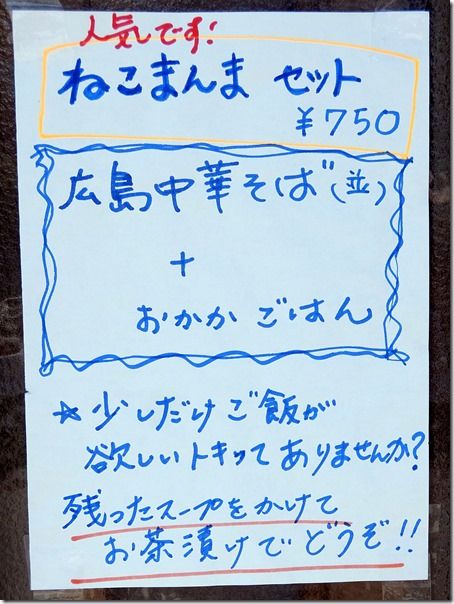 人気です!
ねこまんま セット
￥750
広島中華そば(並)
+
おかか ごはん
☆少しだけご飯が
欲しいトキってありませんか?
残ったスープをかけて
お茶漬けでどうぞ!!